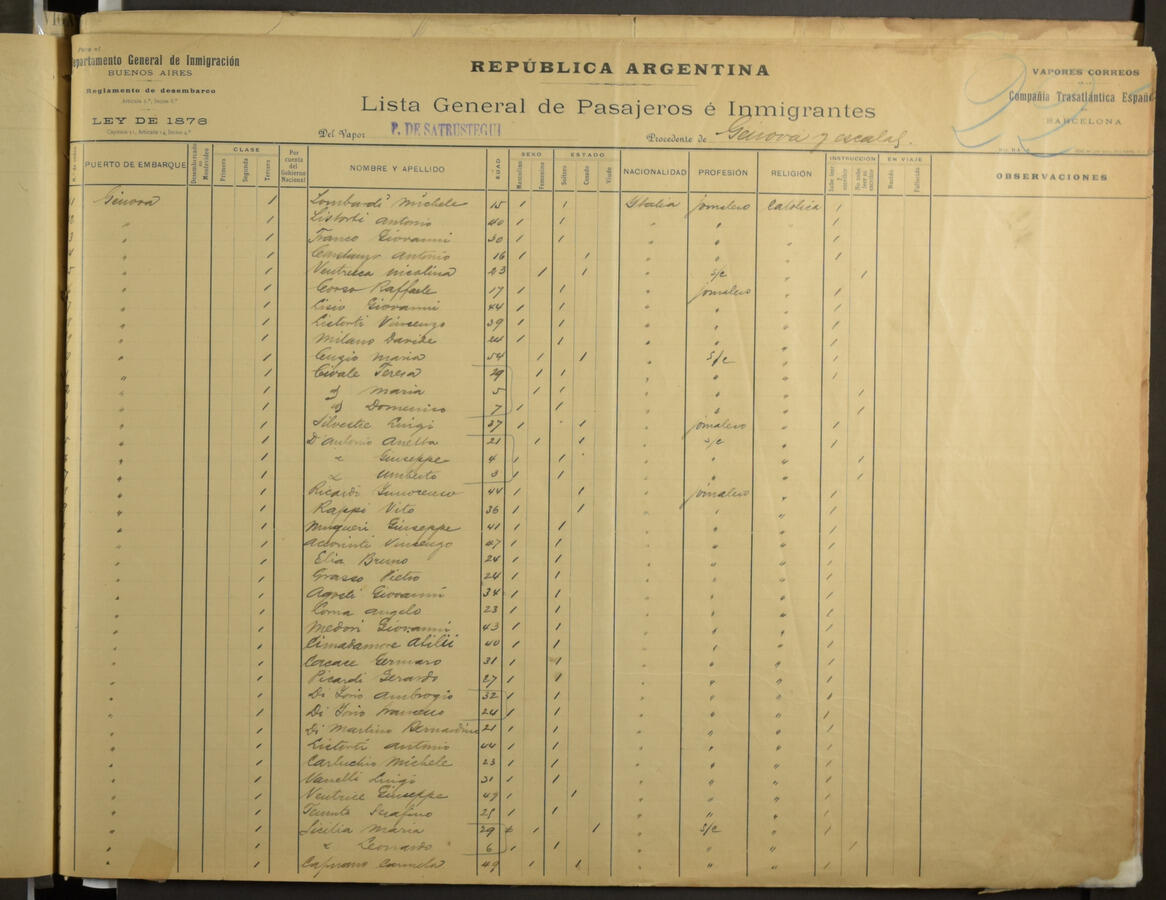 Para el
epartamento General de Inmigración
BUENOS AIRES
Reglamento de desembarco
Artículo 2.º, Inciso 6.º
LEY DE 1878
Capítulo 11, Artículo 14, Inciso 4.º
REPÚBLICA ARGENTINA
Lista General de Pasajeros é Inmigrantes
Del Vapor P. DE SATRUSTEGUI Procedente de Genova y escalas.
VAPORES CORREOS
DE LA
Compañia Trasatlántica Españ
BARCELONA
PUERTO DE EMBARQUE Desembarcado en Montevideo CLASE Primera Segunda Tercera Por cuenta del Gobierno Nacional NOMBRE Y APELLIDO EDAD SEXO Masculino Femenino ESTADO Soltero Casado Viudo NACIONALIDAD PROFESIÓN RELIGIÓN INSTRUCCIÓN Sabe leer y escribir No sabe leer ni escribir EN VIAJE Nacido Fallecido OBSERVACIONES
1 Génova / Lombardi Michele 15 / / Italia jornalero Católica /
2 " / Listorti Antonio 40 / / " " " /
3 " / Franco Giovanni 30 / / " " " /
4 " / Costanzo Antonio 16 / / " " " /
5 " / Ventresca Nicolina 23 / / " s/c " /
" / Corso Raffaele 17 / / " jornalero " /
" / Lisio Giovanni 44 / / " " " /
" / Listorti Vincenzo 39 / / " " " /
" / Milano Davide 24 / / " " " /
" / Cuzio Maria 54 / / " s/c " /
" / Civale Teresa 29 / / " " " /
" / id Maria 5 / / " " " /
" / id Domenico 7 / / " " " /
" / Silvestre Luigi 37 / / " jornalero " /
" / D'Antonio Anella 21 / / " s/c " /
" / " Giuseppe 4 / / " " " /
" / " Umberto 3 / / " " " /
" / Ricardi Innocenzo 44 / / " jornalero " /
" / Rappi Vito 36 / / " " " /
" / Giuseppe 41 / / " " " /
" / Accorinti Vincenzo 47 / / " " " /
" / Elia Bruno 24 / / " " " /
" / Grasso Pietro 24 / / " " " /
" / Agosti Giovanni 34 / / " " " /
" / Coma Angelo 23 / / " " " /
" / Medori Giovanni 43 / / " " " /
" / Cimadamore Atilii 40 / / " " " /
" / Corcace Germaro 31 / / " " " /
" / Picardi Gerardo 27 / / " " " /
" / Di Iorio Ambrogio 32 / / " " " /
" / Di Iorio Francesco 24 / / " " " /
" / Di Martino Bernardino 21 / / " " " /
" / Listorti Antonio 44 / / " " " /
" / Carluchio Michele 23 / / " " " /
" / Vanelli Luigi 31 / / " " " /
" / Giuseppe 49 / / " " " /
" / Serafino / / " " " /
" / Sicilia Maria 29 / / " s/c " /
" / " Leonardo 6 / / " " " /
" / Capuano Carmela 49 / / " " " /